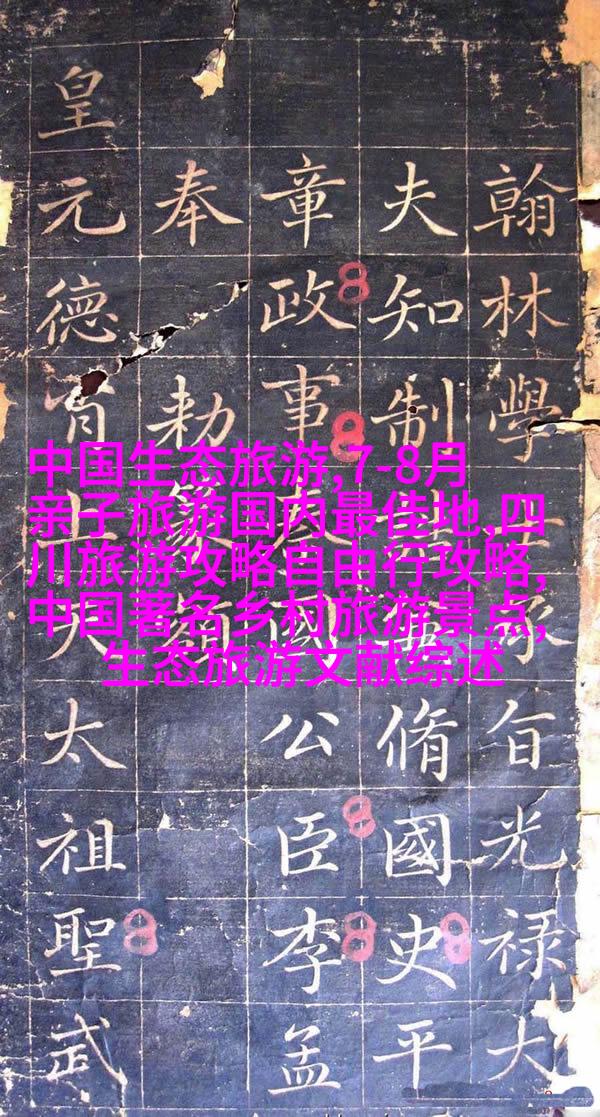 翰林學士承旨光禄大
夫知制脩國史平
章政事國公臣李孟
奉勅篆額
皇元德上天太祖聖武
中国生态旅游,7-8月
亲子旅游国内最佳地,四
川旅游攻略自由行攻略,
中国著名乡村旅游景点,
生态旅游文献综述